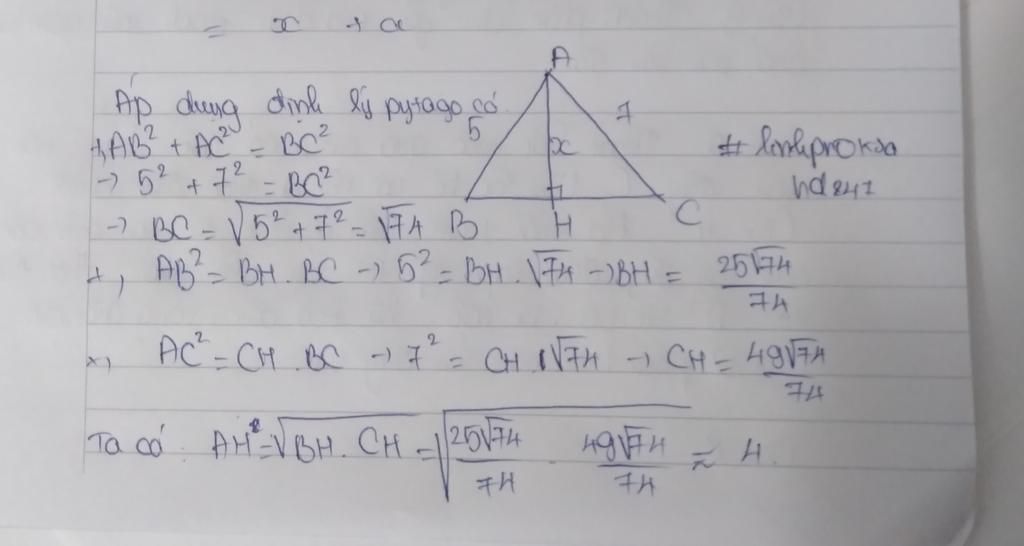 = x + a
Áp dụng định lý pytago có
+, AB² + AC² = BC²
→ 5² + 7² = BC²
→ BC = √(5² + 7²) = √74
A
5
7
x
B
H
C
# linhproksa
hd241
+, AB² = BH . BC → 5² = BH . √74 → BH = 25√74/74
x, AC² = CH . BC → 7² = CH . √74 → CH = 49√74/74
Ta có: AH² = √(BH . CH) = √(25√74/74 . 49√74/74) ≈ 4.